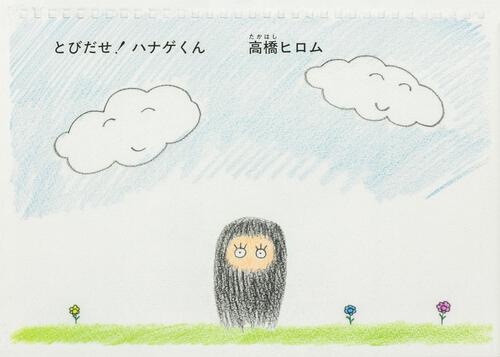 とびだせ!ハナゲくん
高橋ヒロム
たかはし